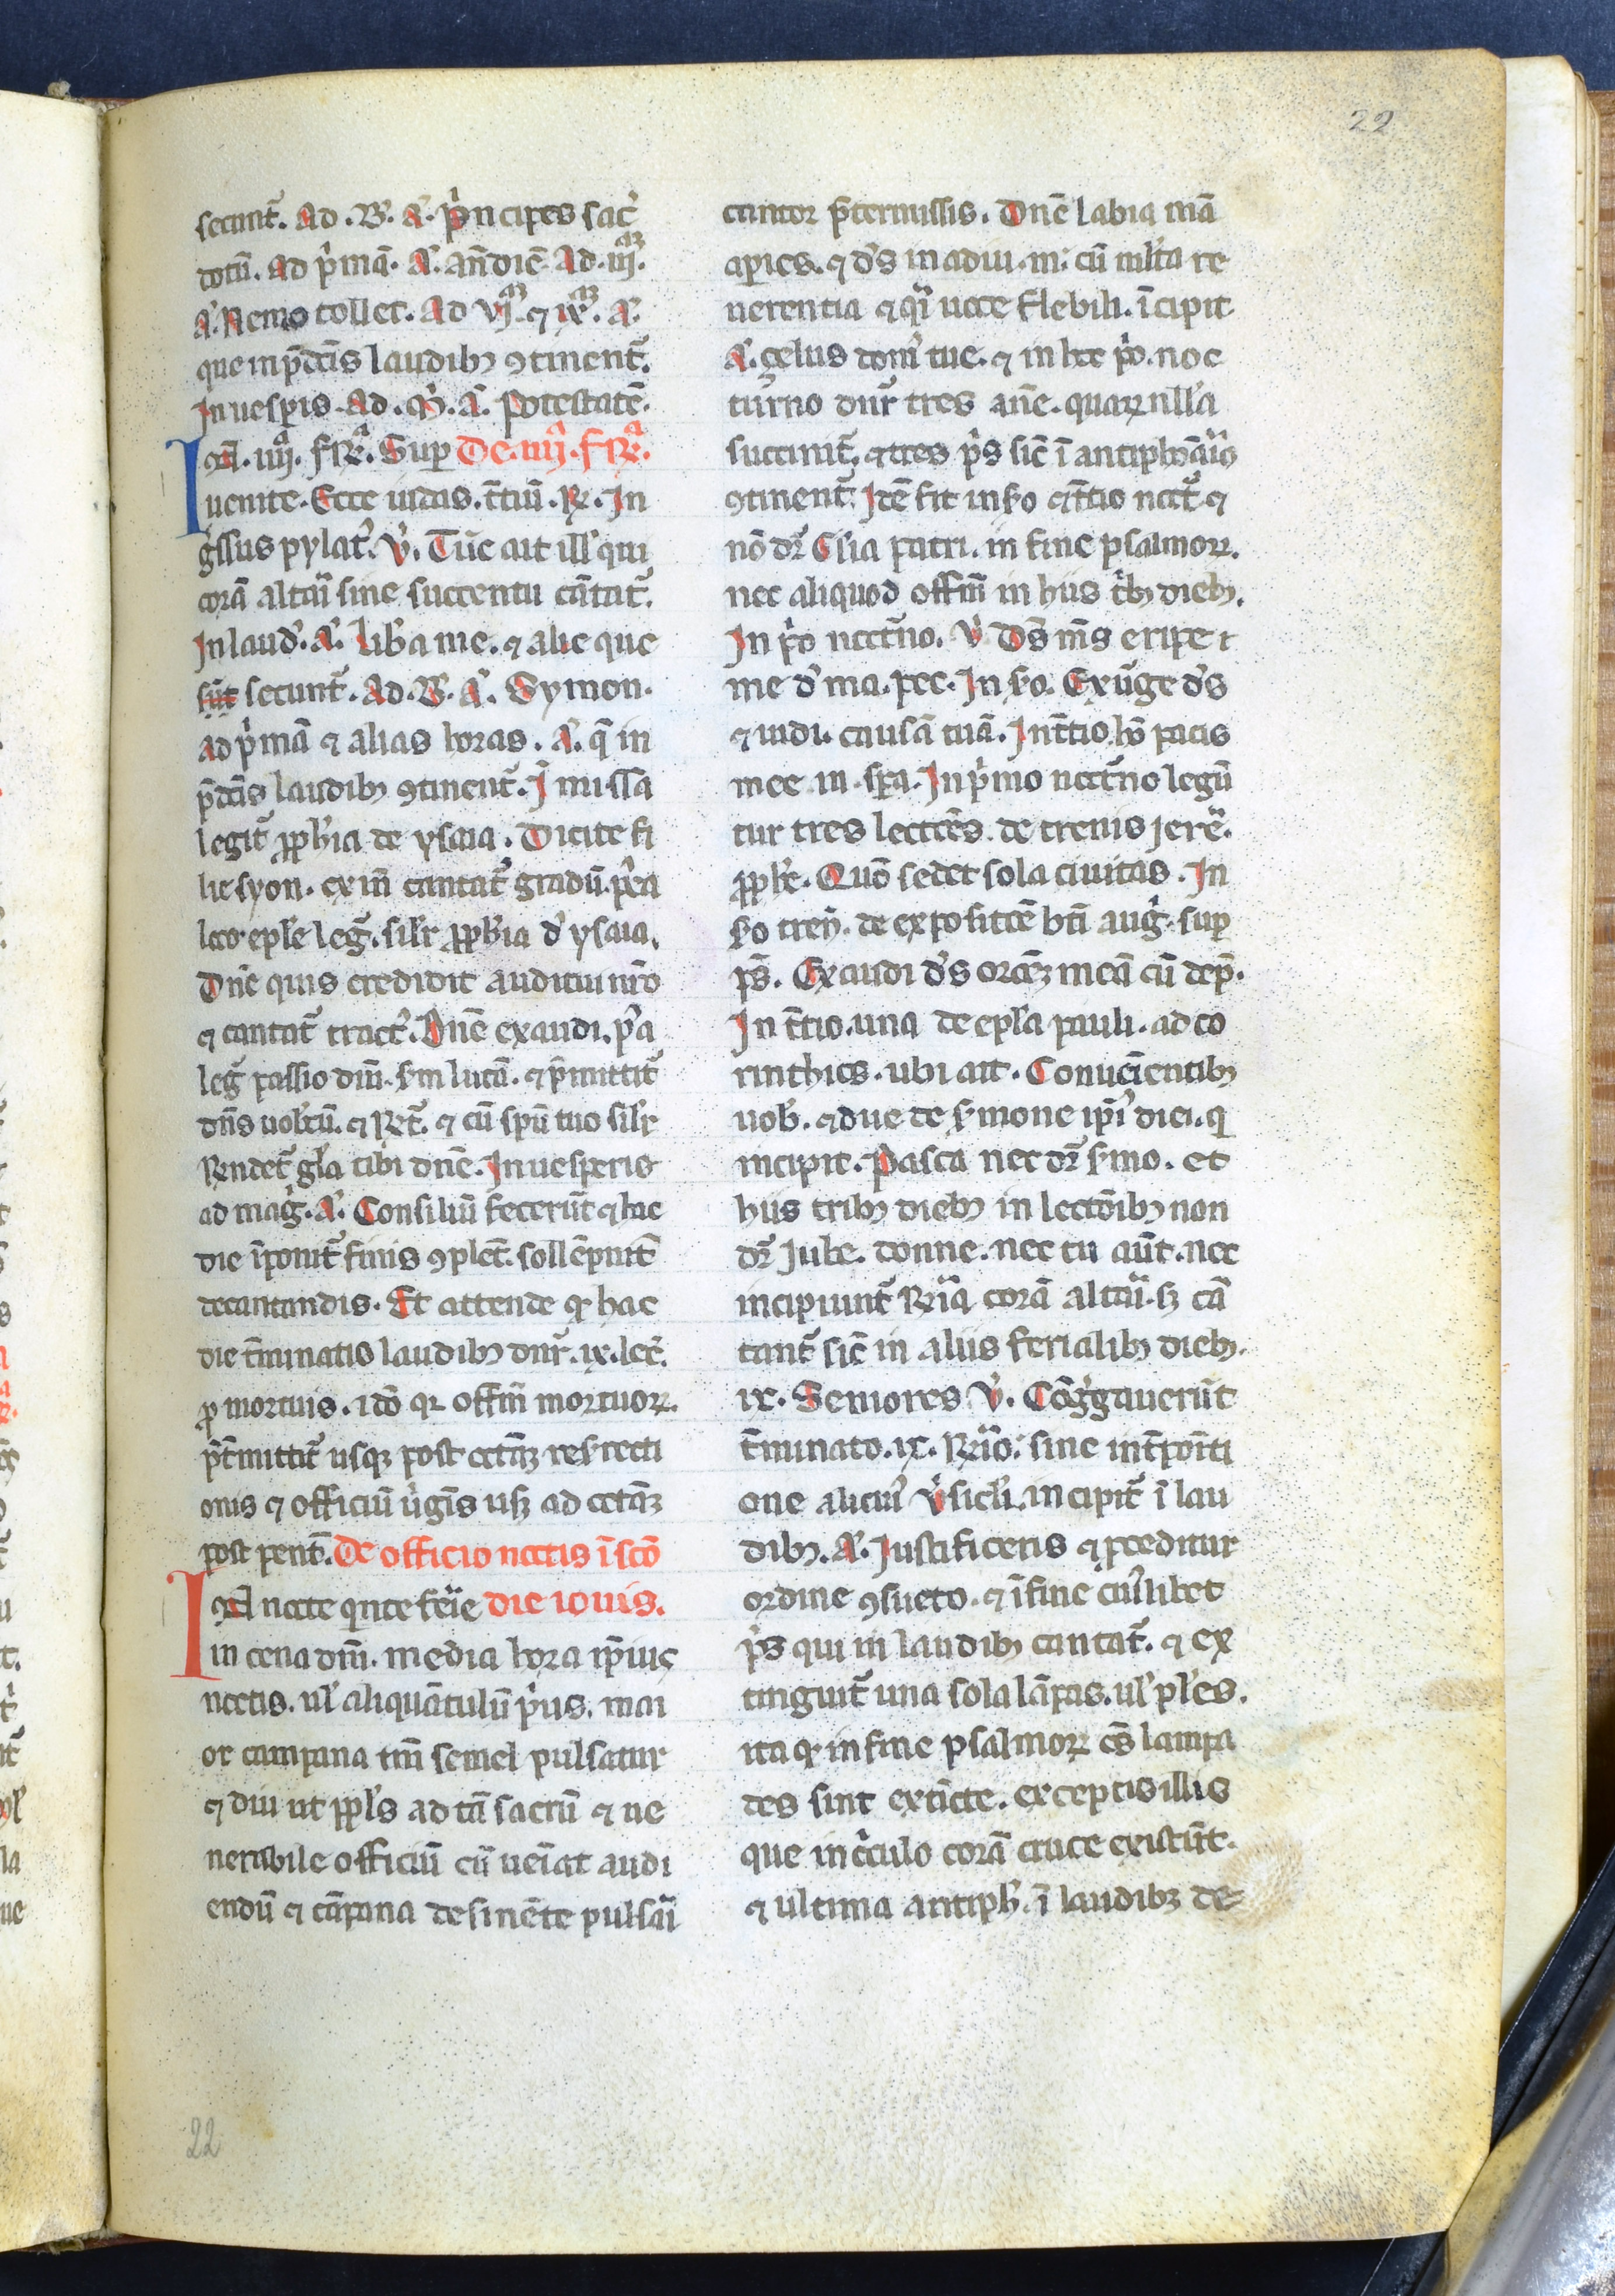 22
secunt᷑. Ad .B. A᷑. P̓ncipes sac᷑
dotū. ad p̓mā. A᷑. an̄ diē. Ad .iij.
A᷑. Nemo tollet. Ad vj. ⁊ ix. A᷑.
que in p̄dc̄is laudibꝫ ꝯtinent᷑.
In uesꝑis. Ad .M̓. A᷑. Potestatē.
In .iiij. fꝶ̓a. Suꝑ De .iiij. fꝶ̓a.
uenite. Ecce iudas. t̄tiū .ꝶ. In
g̓ssus pylat᷑. v̓. Tūc ait ill̓ qui
corā altari sine succentu cātat᷑.
In laud̓. A᷑. Lib̓a me. ⁊ alie que
sūt secunt᷑. Ad .B. A᷑. Symon.
ad p̓mā ⁊ alias horas. A᷑. q̄ in
p̄dc̄is laudibꝫ ꝯtinent᷑. I missa
legit᷑ ꝓph̓ia de ysaia. Dicite fi
lie syon. ex in̄ cantat᷑ gradū. p̓ea
lcō ep̄le leg᷑. sil̓r ꝓph̓ia d̓ ysaia.
Dn̄e quis credidit auditui nr̄o
⁊ cantat᷑ tract᷑. Dn̄e exaudi. p̓a
leg᷑ passio dn̄i. s̓m lucā. ⁊ p̄mittit᷑
dn̄s uobcū. ⁊ ꝶt᷑. ⁊ cū sp̄u tuo sil̓r
ꝶndet᷑ gl̄a tibi dn̄e. In uesperis
ad mag̓. A᷑. Consiliū fecerūt ⁊ hac
die īponit᷑ finis ꝯplet᷑. sollēpnit᷑
decantandis. Et attende qꝛ hac
die t̄minatis laudibꝫ dn̄r .ix. lec̓.
ꝓ mortuis. idō qꝛ offm̄ mortuoꝝ.
p̄t̄mittit᷑ usqꝫ post octāꝫ resrecti
onis ⁊ officiū v̓gīs usꝫ ad octāꝫ
post pent᷑. De officio noctis ī scō
In nocte qͥnte fe̓ie die iouis.
in cena dn̄i. media hora ip̄ius
noctis. ul̓ aliquātulū p̓us. mai
or campana tm̄ semel pulsatur
⁊ diu ut ppl̓s ad tā sacrū ⁊ ue
nerabile officiū cū ueīat audi
endū ⁊ cāpana desinēte pulsari
cantor p̄termissis. Dn̄e labia mā
aperies. ⁊ d̓s in adiu. m̓. cū ml̓ta re
uerentia ⁊ qͣi uoce flebili. īcipit
A᷑. çelus dom̓ tue. ⁊ in hoc p̓o. noc
turno dn̄r tres an̄e. quaꝝ null̓a
succinit᷑. ⁊ tres p̓s sic̄ ī antiphonariis
ꝯtinent᷑. Itē fit in s̓o ⁊ t̄tio noct᷑. ⁊
nō dr̄ Gl̓ia patri. in fine psalmoꝝ.
nec aliquod offm̄ in hiis t̓bꝫ diebꝫ.
In p̓o noct̄no. v̓ D̄s m̄s eripe
me d̓ ma. pec. In s̓o. Exūge d̓s
⁊ iudi. causā tuā. In t̄tio hō pacis
mee in . spa. In p̓mo noct̄no legū
tur tres lecc̄ēs. de trenis jere̓.
ꝓph̓e. Quō sedet sola ciuitas. In
s̓o treī. de expositōē bt̄i aug᷑. suꝑ
p̄s. Exaudi d̓s orōꝫ meā cū dep̄.
In t̄tio. una de epl̓a pauli. ad co
rinthios. ubi ait. Conueīentibꝫ
uob̓. ⁊ due de s̓mone ip̄i᷒ diei. q̄
incipit. Pasca nec dr̄ s̓mo. et
hiis tribꝫ diebꝫ in lectōibꝫ non
dr̄ Jube. donne. nec tu aūt. nec
incipiunt᷑ ꝶria corā altari. sꝫ cā
tant᷑ sic̄ in aliis ferialibꝫ diebꝫ.
ix. Seniores v̓. Cōg̓gauerūt
t̄minato .ix. ꝶrio. sine int̄poīti
one alicui᷒ v̓sicl̓i. incipit᷑ ī lau
dibꝫ. A᷑. Justificeris ⁊ ꝓceditur
ordine ꝯsueto. ⁊ ī fine cui᷒libet
p̓s qui in laudibꝫ cantat᷑. ⁊ ex
tinguit᷑ una sola lāpas. ul̓ pl̓es.
ita qꝛ in fine psalmoꝝ oēs lampa
des sint extīcte. exceptis illis
que in c̓culo corā cruce existūt.
⁊ ultima antiph̓. ī laudibꝫ de
22